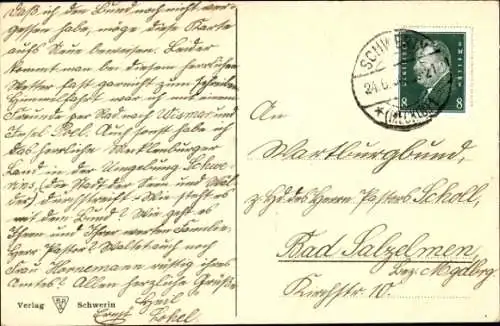 daß ich den Bund noch nicht ver-
gessen habe, möge diese Karte
aufs Neue beweisen. Leider
kommt man bei diesem herrlichen
Wetter fast garnicht zum Schreiben
Himmelfahrt war ich mit einem
Freunde per Rad nach Wismar und
Insel Poel. Auch sonst habe ich
das herrliche Mecklenburger
Land in der Umgebung Schwe-
rins (der Stadt der Seen und Wäl-
der) durchstreift. Wie steht es
mit dem Bund? Wie geht es
Ihnen und Ihrer werten Familie,
Herr Pastor? Waltet auch noch
Frau Hornemann rüstig ihres
Amtes? Allen herzliche Grüße
Heil
Ernst
Verlag Schwerin
SCHWERIN
24.6.
(MECKLB)
DEUTSCHES REICH
8 8
An
Wartburgbund,
z. Hd. des Herrn Pastors Scholl,
Bad Salzelmen,
Bez. Mgdbrg.
Kirchstr. 10.